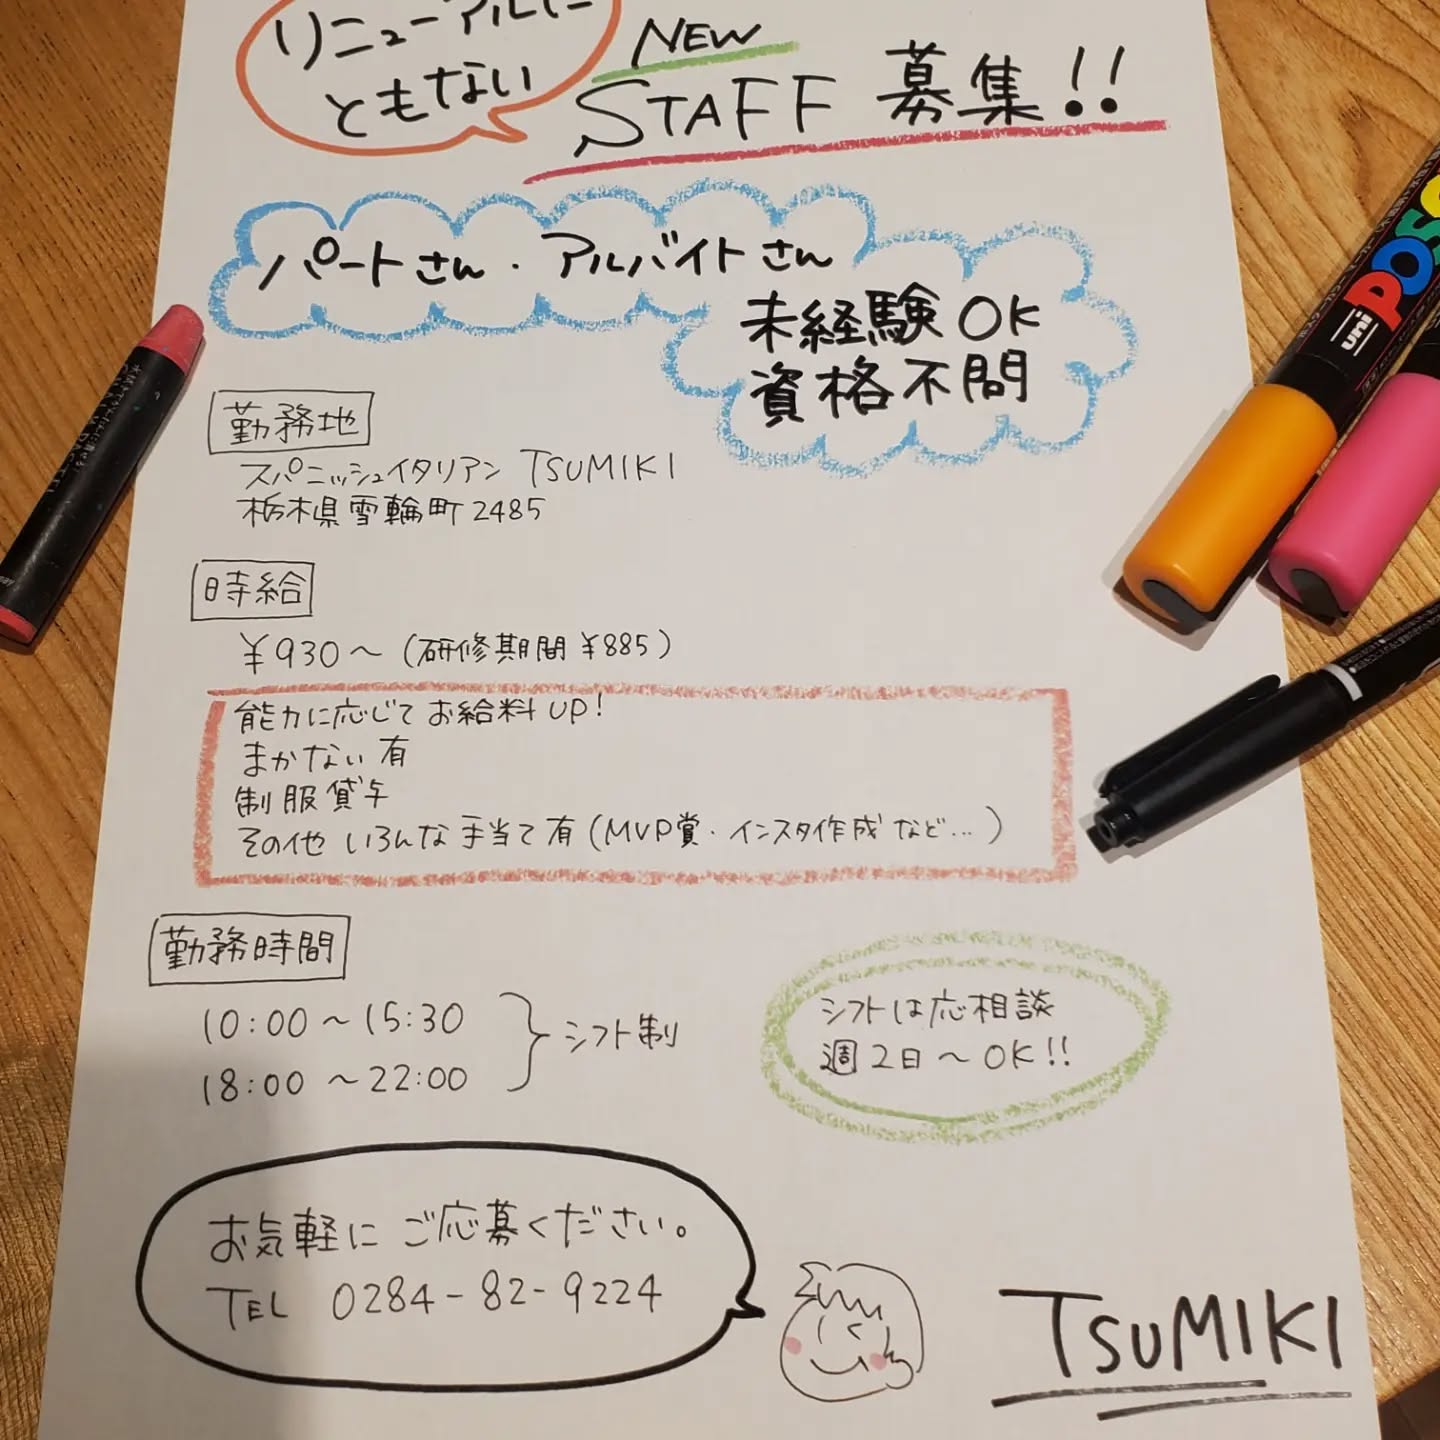 リニューアルに
ともない
NEW
STAFF 募集!!
パートさん・アルバイトさん
未経験OK
資格不問
勤務地
スパニッシュイタリアン TSUMIKI
栃木県雪輪町2485
時給
¥930～(研修期間¥885)
能力に応じてお給料UP!
まかない有
制服貸与
その他 いろんな手当て有(MVP賞・インスタ作成など...)
勤務時間
10:00～15:30
18:00～22:00
シフト制
シフトは応相談
週2日～OK!!
お気軽にご応募ください。
TEL 0284-82-9224
TSUMIKI
uni
POSC